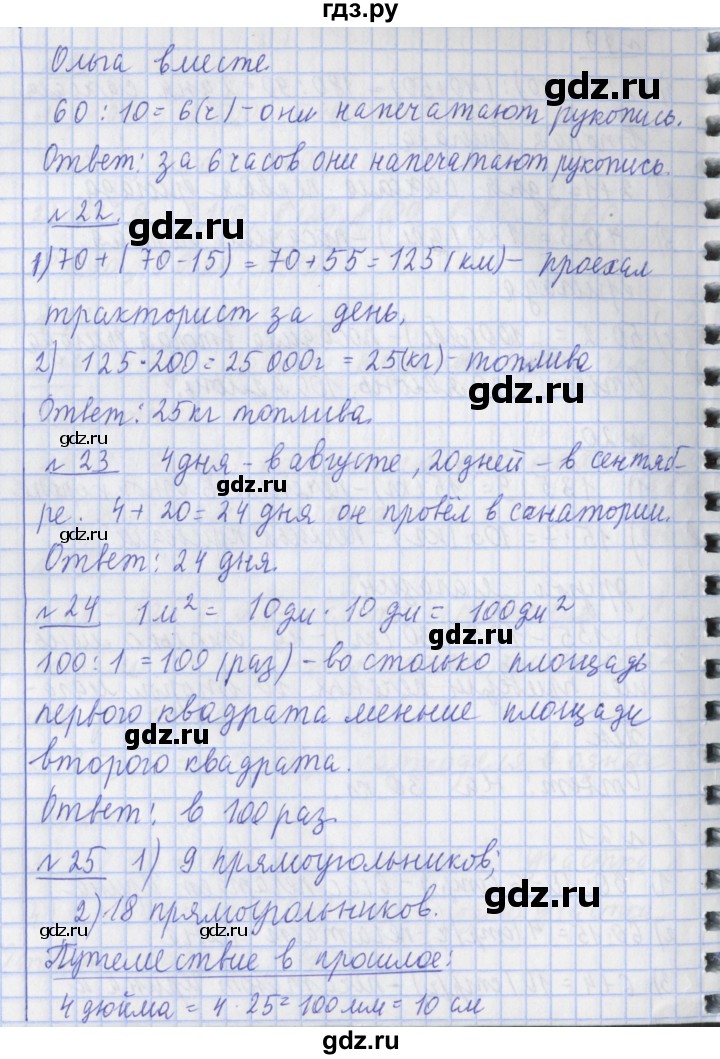 гдз.ру
Ольга вместе.
60 : 10 = 6(ч) – они напечатают рукопись.
Ответ: за 6 часов они напечатают рукопись.
№ 22.
1) 70 + (70 - 15) = 70 + 55 = 125 (км) – проехал
тракторист за день,
2) 125 · 200 = 25 000г = 25(кг) – топлива
Ответ: 25кг топлива.
№ 23 4дня – в августе, 20дней – в сентяб-
ре. 4 + 20 = 24 дня он провёл в санатории.
Ответ: 24 дня.
№ 24 1м² = 10дм · 10 дм = 100дм²
100 : 1 = 100 (раз) – во столько площадь
первого квадрата меньше площади
второго квадрата.
Ответ: в 100 раз
№ 25 1) 9 прямоугольников;
2) 18 прямоугольников.
Путешествие в прошлое:
4 дюйма = 4 · 25 = 100мм = 10 см
gdz.ru
gdz.ru
gdz.ru
gdz.ru
gdz.ru
gdz.ru
gdz.ru
gdz.ru
gdz.ru
gdz.ru
gdz.ru
gdz.ru
gdz.ru